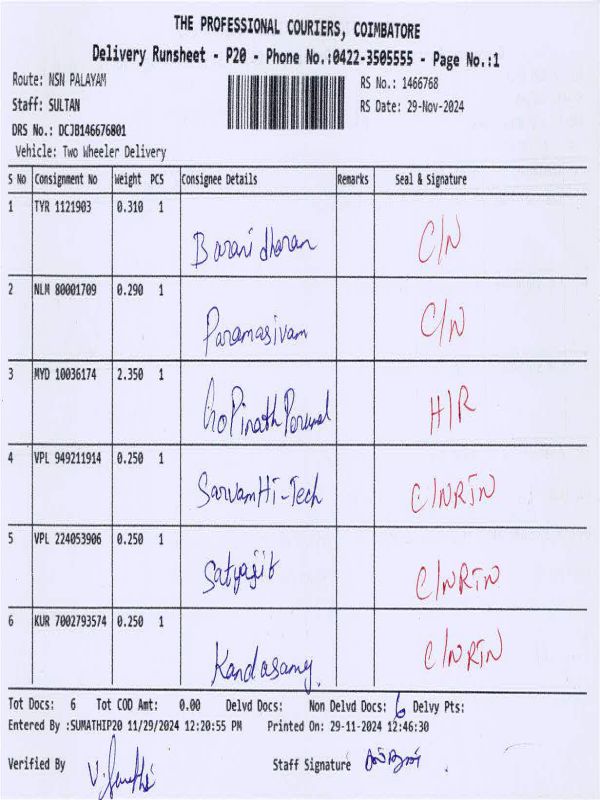 THE PROFESSIONAL COURIERS, COIMBATORE
Delivery Runsheet - P20 - Phone No.:0422-3505555 - Page No.:1
Route: NSN PALAYAM RS No.: 1466768
Staff: SULTAN RS Date: 29-Nov-2024
DRS No.: DCJB146676801
Vehicle: Two Wheeler Delivery
S No Consignment No Weight PCS Consignee Details Remarks Seal & Signature
1 TYR 1121903 0.310 1
Baranidharan C/N
2 NLM 80001709 0.290 1
Paramasivam C/N
3 MYD 10036174 2.350 1
GoPinath Perumal H/R
4 VPL 949211914 0.250 1
SarvamHi-Tech C/NRTN
5 VPL 224053906 0.250 1
Satyajit C/NRTN
6 KUR 7002793574 0.250 1
Kandasamy. C/NRTN
Tot Docs: 6 Tot COD Amt: 0.00 Delvd Docs: Non Delvd Docs: 6 Delvy Pts:
Entered By :SUMATHIP20 11/29/2024 12:20:55 PM Printed On: 29-11-2024 12:46:30
Verified By Staff Signature